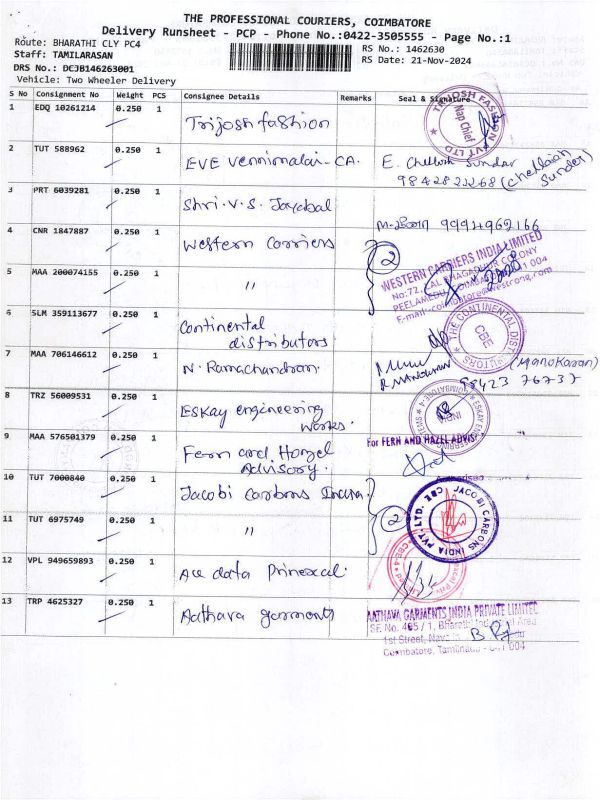 THE PROFESSIONAL COURIERS, COIMBATORE
Delivery Runsheet - PCP - Phone No.:0422-3505555 - Page No.:1
Route: BHARATHI CLY PC4
RS No.: 1462630
Staff: TAMILARASAN
RS Date: 21-Nov-2024
DRS No.: DCJB146263001
Vehicle: Two Wheeler Delivery
S No Consignment No Weight PCS Consignee Details Remarks Seal & Signature
1 EDQ 10261214 0.250 1 Trijosh fashion
TRIJOSH FASHION PVT LTD
Nap Chief
2 TUT 588962 0.250 1 EVE Vennimalai-CA. E. Chellosh Sundar
9842821268 (Chellaiah Sunder)
3 PRT 6039281 0.250 1 Shri.V.S. Jayabal
9994962166
4 CNR 1847887 0.250 1 Western Carriers 2
WESTERN CARRIERS INDIA LIMITED
5 MAA 200074155 0.250 1 "
6 SLM 359113677 0.250 1 Continental distributors
THE CONTINENTAL DISTRIBUTORS
CBE
7 MAA 706146612 0.250 1 N. Ramachandran. (Manokaran)
98423 76737
8 TRZ 56009531 0.250 1 Eskay engineering works.
9 MAA 576501379 0.250 1 Fern and Hazel Advisory.
For FERN AND HAZEL ADVIS
10 TUT 7000840 0.250 1 Jacobi carbons India. 2
JACOBI CARBONS INDIA PVT. LTD. CBE
11 TUT 6975749 0.250 1 "
12 VPL 949659893 0.250 1 Ace data
13 TRP 4625327 0.250 1 Aathava garments
AATHAVA GARMENTS INDIA PRIVATE LIMITED
SF. No. 485 / 1, Bharathi Area
1st Street,
Coimbatore, Tamilnadu - 641 004